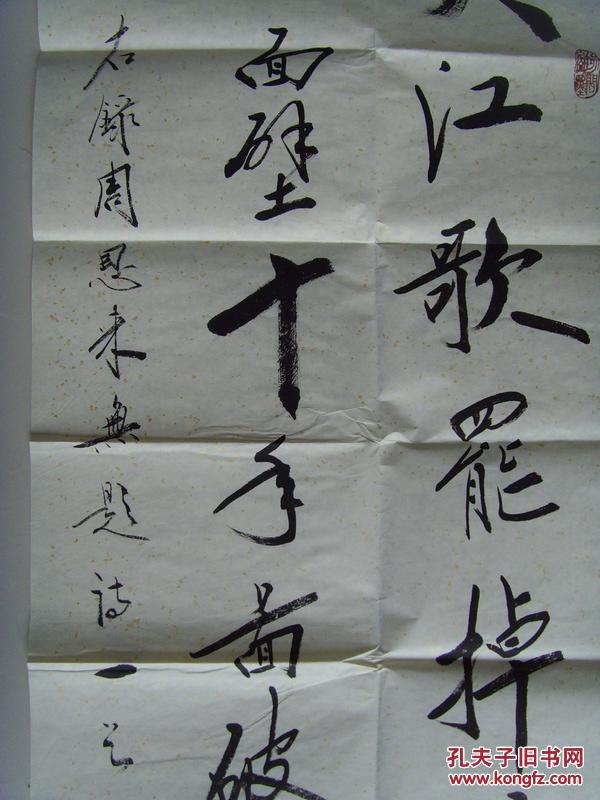 大江歌罷掉
面壁十年啚破
右録周恩来無題詩一首
孔夫子旧书网
www.kongfz.com